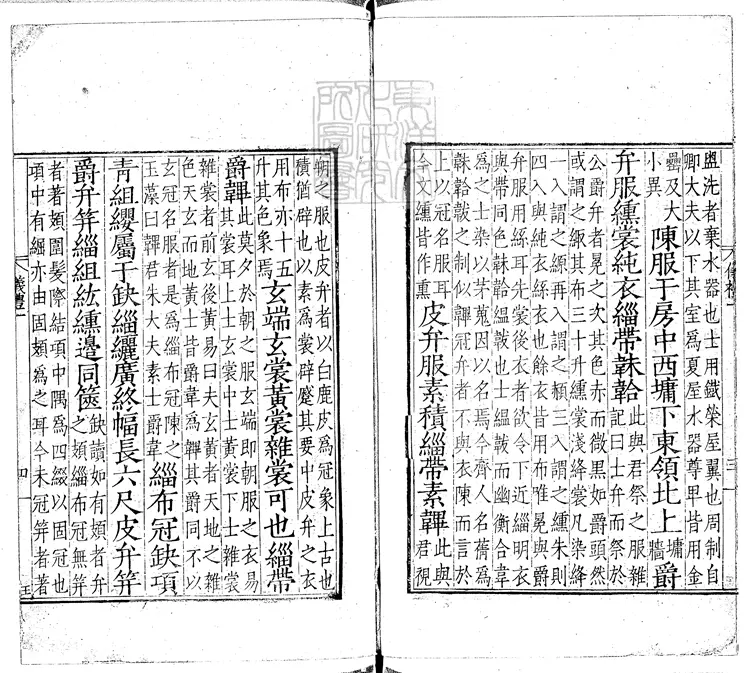 盥洗者棄水器也士用鐵榮屋翼也周制自
卿大夫以下其室為夏屋水器尊卑皆用金
罍及大
小異
陳服于房中西墉下東領北上
墉
牆
爵
弁服纁裳純衣緇帶韎韐
此與君祭之服雜
記曰士弁而祭於
公爵弁者冕之次其色赤而微黑如爵頭然
或謂之緅其布三十升纁裳淺絳裳凡染絳
一入謂之縓再入謂之赬三入謂之纁朱則
四入與純衣絲衣也餘衣皆用布唯冕與爵
弁服用絲耳先裳後衣者欲令下近緇明衣
與帶同色韎韐縕韍也士縕韍而幽衡合韋
為之士染以茅蒐因以名焉今齊人名蒨為
韎韐韍之制似韠冠弁者不與衣陳而言於
上以冠名服耳
今文纁皆作熏
皮弁服素積緇帶素韠
此與
君視
朝之服也皮弁者以白鹿皮為冠象上古也
積猶辟也以素為裳辟蹙其要中皮弁之衣
用布亦十五
升其色象焉
玄端玄裳黃裳雜裳可也緇帶
爵韠
此莫夕於朝之服玄端即朝服之衣易
其裳耳上士玄裳中士黃裳下士雜裳
雜裳者前玄後黃易曰夫玄黃者天地之雜
色天玄而地黃士皆爵韋為韠其爵同不以
玄冠名服者是為緇布冠陳之
玉藻曰韠君朱大夫素士爵韋
緇布冠缺項
青組纓屬于缺緇纚廣終幅長六尺皮弁笄
爵弁笄緇組紘纁邊同篋
缺讀如有頍者弁
之頍緇布冠無笄
者著頍圍髮際結項中隅為四綴以固冠也
項中有亦由固頍為之耳今未冠笄者著
儀禮一
四